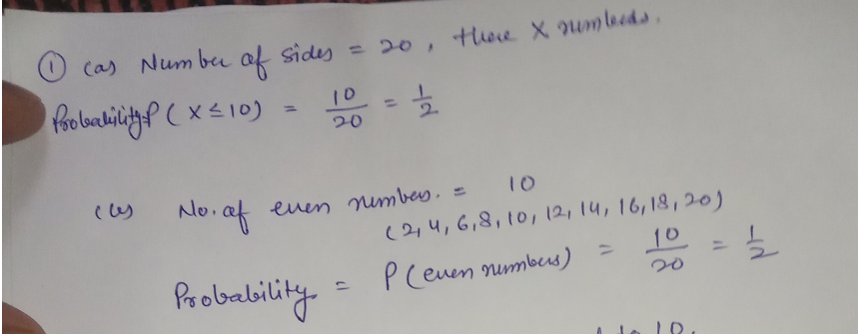 ① (a) Number of sides = 20, there X numbers.
Probability P(X ≤ 10) = 10/20 = 1/2
(b) No. of even numbers. = 10
(2, 4, 6, 8, 10, 12, 14, 16, 18, 20)
Probability = P(even numbers) = 10/20 = 1/2
10.